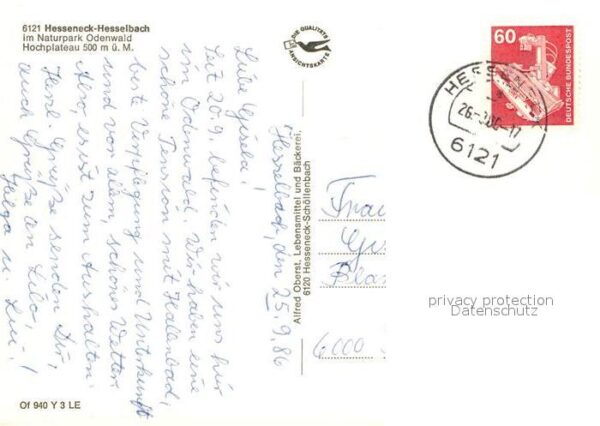 6121 Hesseneck-Hesselbach
im Naturpark Odenwald
Hochplateau 500 m ü. M.
DIE QUALITÄTS
ANSICHTSKARTE
Hesselbach, den 25.9.86
Liebe Gisela!
Seit 20.9. befinden wir uns hier
im Odenwald. Wir haben eine
schöne Pension mit Hallenbad,
beste Verpflegung und Unterkunft
und vor allem, schönes Wetter.
Also, es ist zum Aushalten.
Herzl. Grüße senden Dir,
auch Grüße an Lilo,
Helga u.
Alfred Oberst, Lebensmittel und Bäckerei,
6120 Hesseneck-Schöllenbach
Frau
Gis
6000
60
DEUTSCHE BUNDESPOST
HESSENECK
6121
privacy protection
Datenschutz
Of 940 Y 3 LE